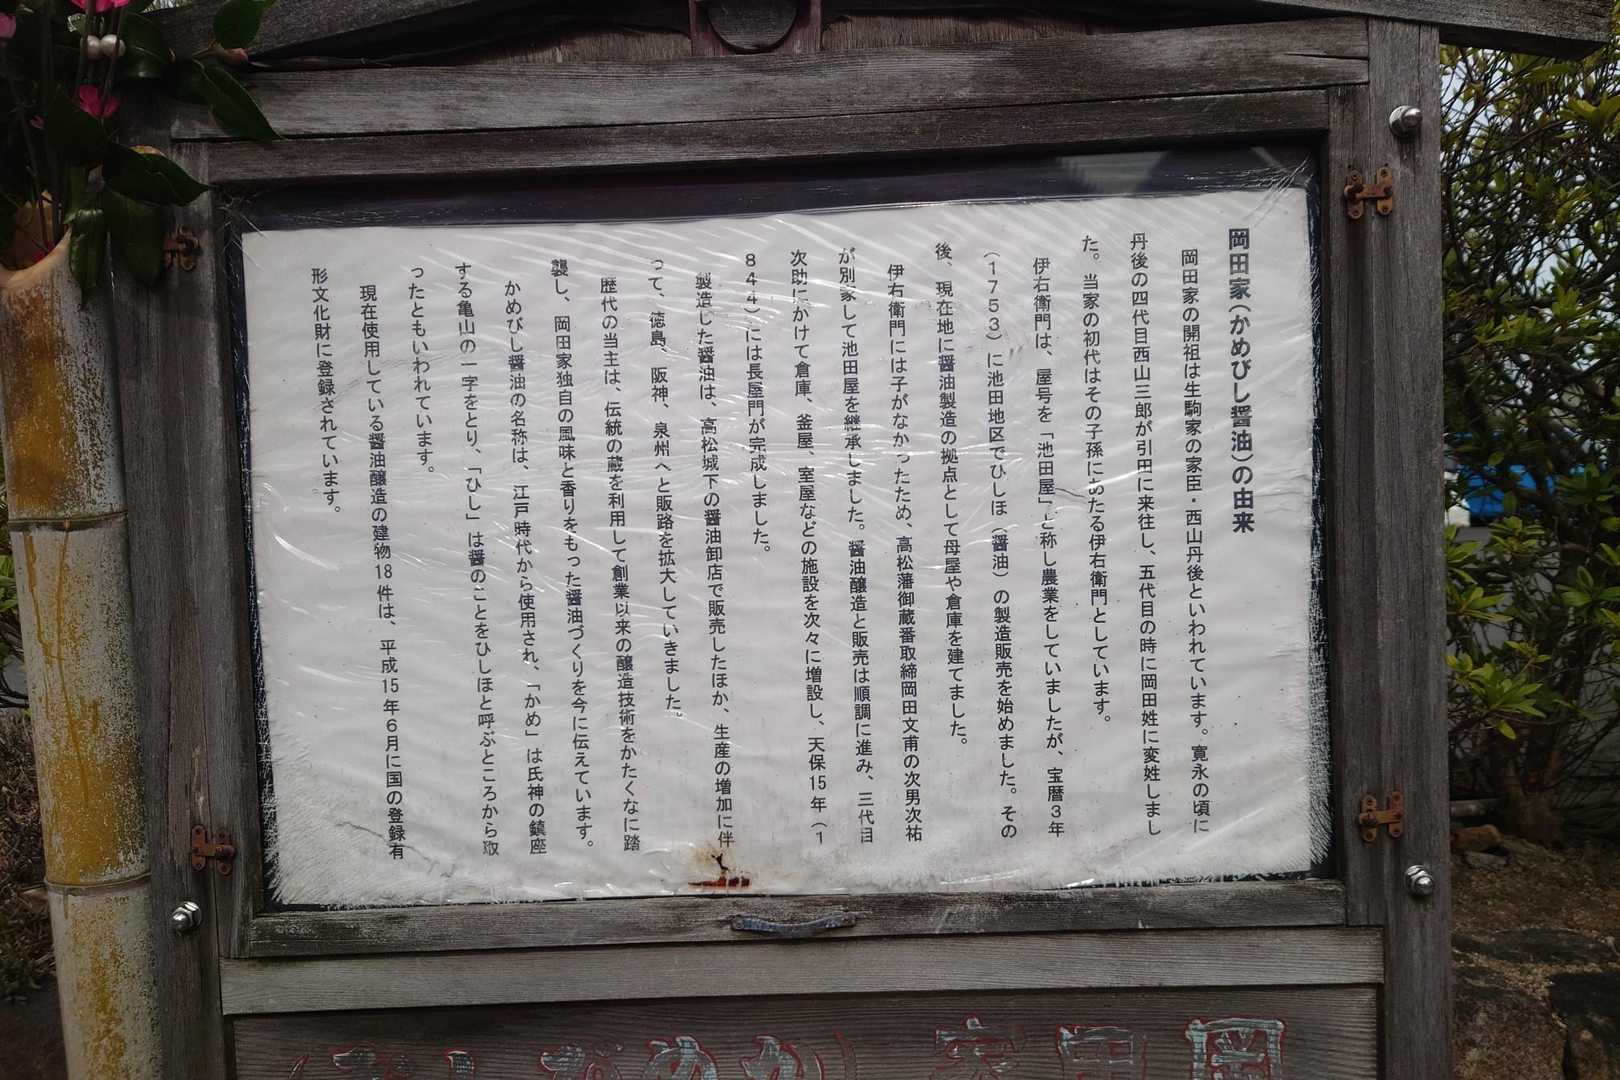 岡田家（かめびし醤油）の由来
岡田家の開祖は生駒家の家臣・西山丹後といわれています。寛永の頃に
丹後の四代目西山三郎が引田に来往し、五代目の時に岡田姓に変姓しまし
た。当家の初代はその子孫にあたる伊右衛門としています。
伊右衛門は、屋号を「池田屋」と称し農業をしていましたが、宝暦３年
（１７５３）に池田地区でひしほ（醤油）の製造販売を始めました。その
後、現在地に醤油製造の拠点として母屋や倉庫を建てました。
伊右衛門には子がなかったため、高松藩御蔵番取締岡田文甫の次男次祐
が別家して池田屋を継承しました。醤油醸造と販売は順調に進み、三代目
次助にかけて倉庫、釜屋、室屋などの施設を次々に増設し、天保15年（１
８４４）には長屋門が完成しました。
製造した醤油は、高松城下の醤油卸店で販売したほか、生産の増加に伴
って、徳島、阪神、泉州へと販路を拡大していきました。
歴代の当主は、伝統の蔵を利用して創業以来の醸造技術をかたくなに踏
襲し、岡田家独自の風味と香りをもった醤油づくりを今に伝えています。
かめびし醤油の名称は、江戸時代から使用され、「かめ」は氏神の鎮座
する亀山の一字をとり、「ひし」は醤のことをひしほと呼ぶところから取
ったともいわれています。
現在使用している醤油醸造の建物18件は、平成15年６月に国の登録有
形文化財に登録されています。
岡田家（かめびし